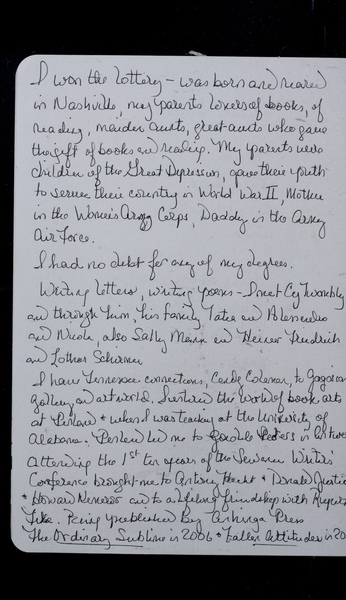 I won the lottery – was born and reared
in Nashville, my parents lovers of books, of
reading, maiden aunts, great-aunts who gave
the gift of books and reading. My parents were
children of the Great Depression, gave their youth
to serve their country in World War II, Mother
in the Women's Army Corps, Daddy in the Army
Air Force.
I had no debt for any of my degrees.
Writing letters, writing poems – I met Cy Twombly
and through him, his family Tatia and Alessandro
and Nicola, also Sally Mann and Heiner Friedrich
and Lothar Schirmer
I have Tennessee connections, Cecily to Gagosian
gallery and art world. the world of book arts
at + when I was teaching at the University of
Alabama. led me to in
Attending the 1st ten years of the Sewanee Writers'
Conference brought me to Anthony Hecht + Donald Justice
+ Howard Nemerov and to a lifelong friendship with
Being published by Press
The Ordinary Sublime in 2006 + Fallen Attitudes in 20